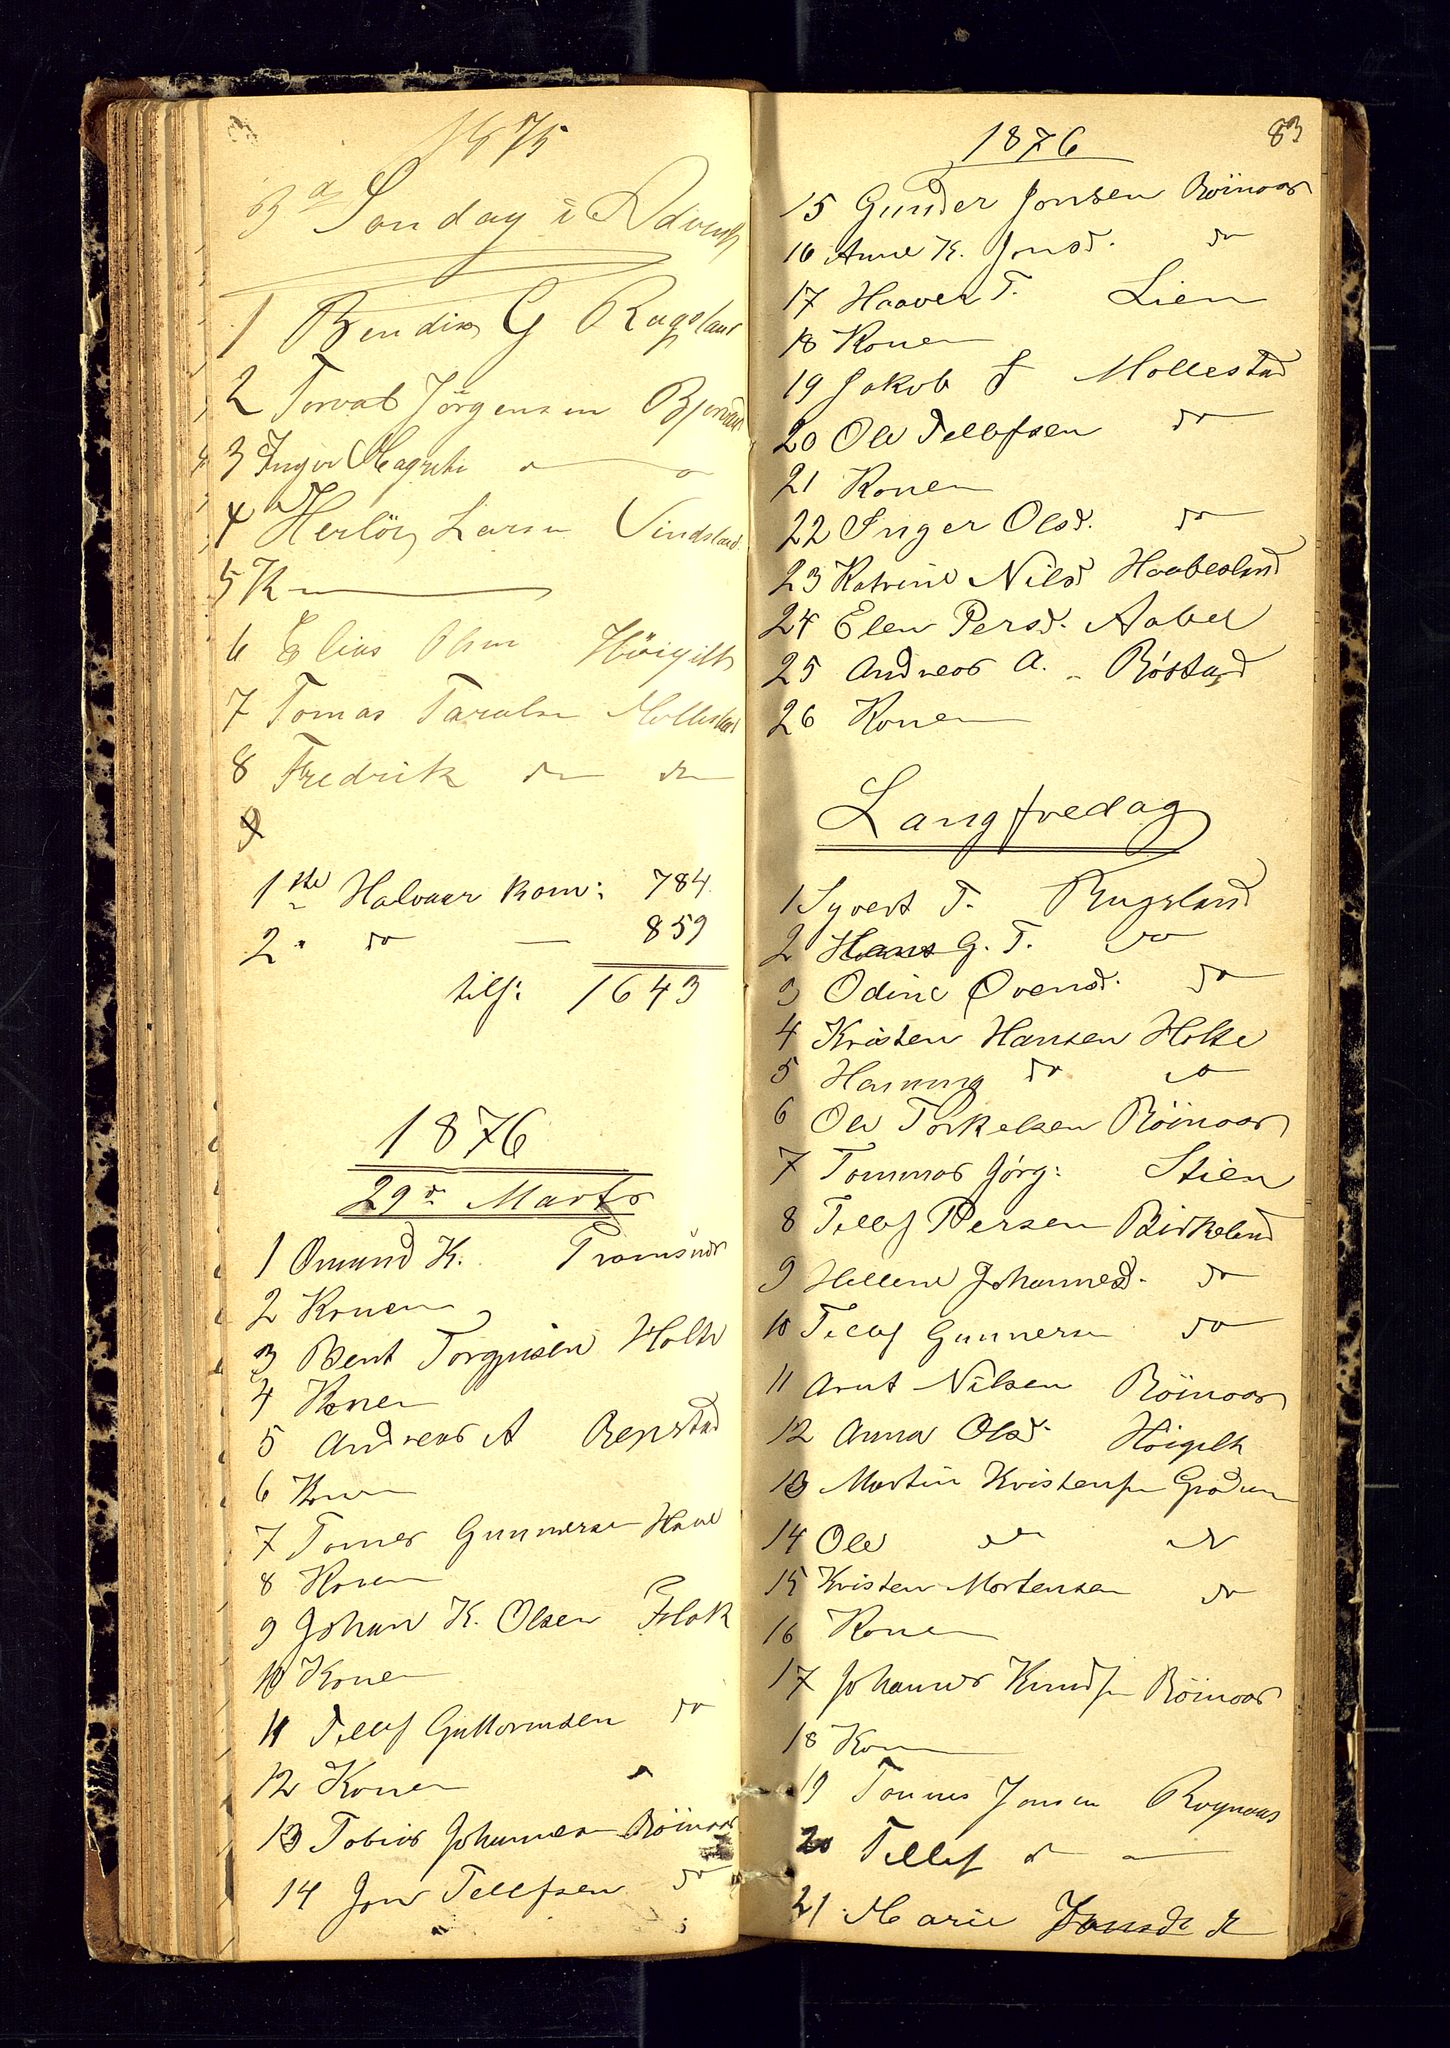 1875
3d Søndag i Advent
1 Bendix G Rugsland
2 Torval Jörgensen
3 Inger Magrete
4 Herlög Larsen Vindsland
5 K
6 Elias Höigilt
7 Tomas Taralsen Mollestad
8 Fredrik do do
9
1ste Halvaar Kom: 784
2. do — 859
tils: 1643
1876
29de Marts
1 Omund K.
2 Konen
3 Bent Torgrisen Holte
4 Konen
5 Andreas A Repstad
6 Konen
7 Tomas Gunnersen
8 Konen
9 Johan K. Olsen Flak
10 Konen
11 Tellef Guttormsen do
12 Konen
13 Tobias Johannesen Röinaas
14 Jon Tellefsen do
1876 83
15 Gunder Jonsen Röinaas
16 Anne K. Jonsd. do
17 Haaver T. Lien
18 Konen
19 Jakob J Mollestad
20 Ole Tellefsen do
21 Konen
22 Inger Olsd. do
23 Katrine Nilsd Haabesland
24 Elen Persd. Aabel
25 Andreas A. Röstad
26 Konen
Langfredag
1 Syvert T. Rugsland
2 Hans G. T. do
3 Odine Øvensd. do
4 Kristen Hansen Holte
5 Henning do do
6 Ole Torkelsen Röinaas
7 Tommas Jörg: Stien
8 Tellef Persen Birkeland
9 Hellene Johannesd. do
10 Tellef Gunnersen do
11 Arnt Nilsen Röinaas
12 Anna Olsd. Höigilt
13 Martin Kristensen
14 Ole do do
15 Kristen Mortensen do
16 Konen
17 Johannes Knudsen Röinaas
18 Konen
19 Tønnes Jonsen Røynaas
20 Tellef do —
21 Marie Jonsdt do